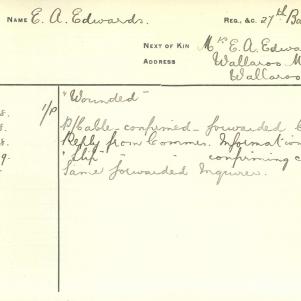 NAME E. A. Edwards. REG., &C. 27th Ba
NEXT OF KIN Mrs E. A. Edwa
ADDRESS Wallaroo M
Wallaroo
"Wounded"
8. 1/P P/Cable - confirmed - forwarded
8. Reply from Commes. Information
9. "Slip" - - confirming c
Same forwarded Inquirer.